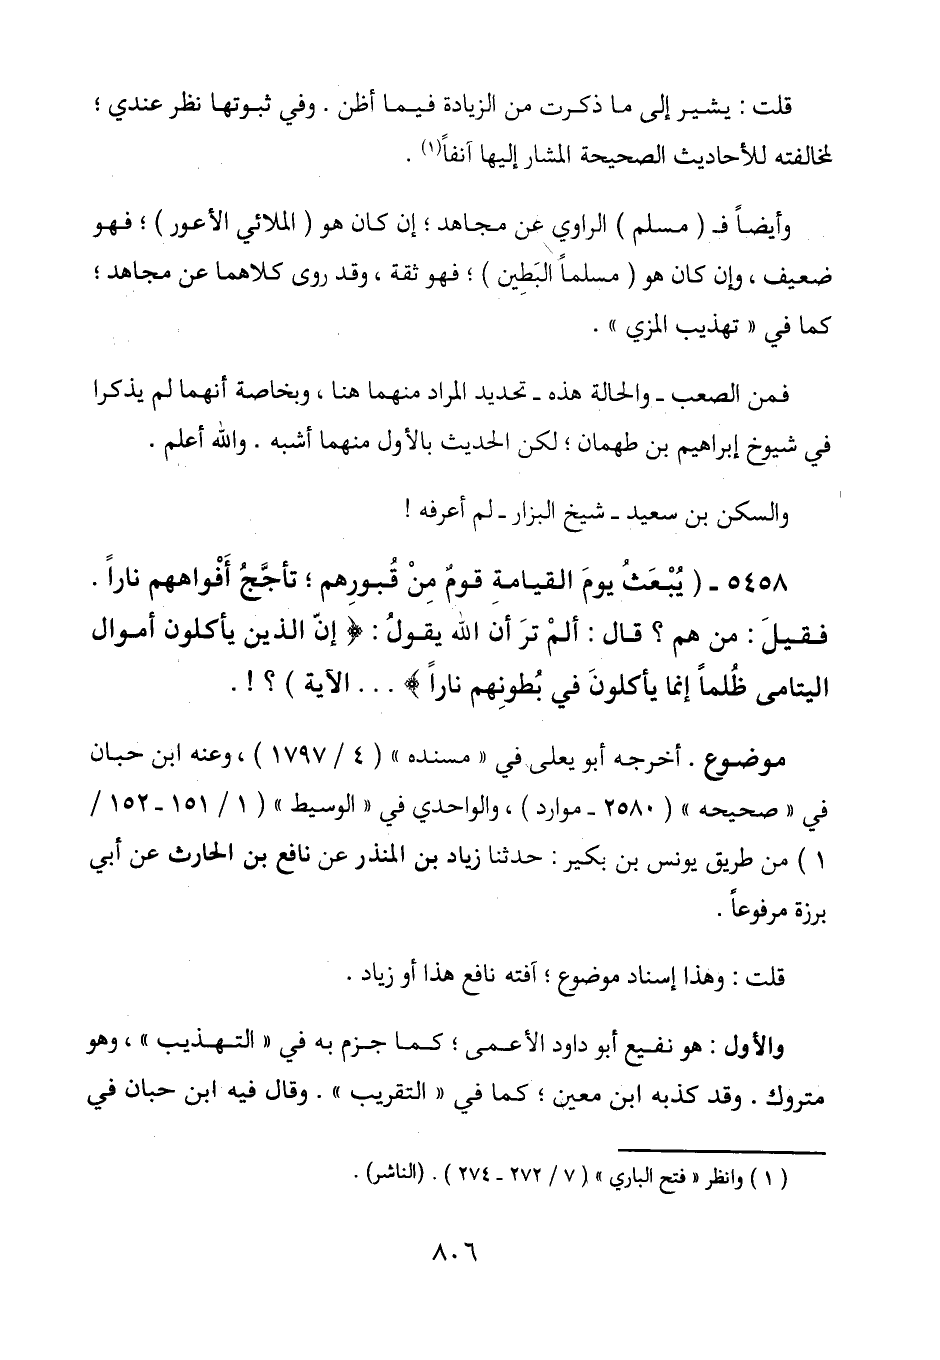 قلت : يشير إلى ما ذكرت من الزيادة فيما أظن . وفي ثبوتها نظر عندي ؛
لمخالفته للأحاديث الصحيحة المشار إليها آنفاً(١) .
وأيضاً فـ ( مسلم ) الراوي عن مجاهد ؛ إن كان هو ( الملائي الأعور ) ؛ فهو
ضعيف ، وإن كان هو ( مسلماً البَطين ) ؛ فهو ثقة ، وقد روى كلاهما عن مجاهد ؛
كما في « تهذيب المزي » .
فمن الصعب ـ والحالة هذه ـ تحديد المراد منهما هنا ، وبخاصة أنهما لم يذكرا
في شيوخ إبراهيم بن طهمان ؛ لكن الحديث بالأول منهما أشبه . والله أعلم .
والسكن بن سعيد ـ شيخ البزار ـ لم أعرفه !
٥٤٥٨ ـ ( يُبْعَثُ يومَ القيامةِ قومٌ مِنْ قُبورِهم ؛ تأجَّجُ أَفْواههم ناراً .
فقيلَ : من هم ؟ قال : ألمْ ترَ أن الله يقولُ : ﴿ إنّ الذين يأكلون أموال
اليتامى ظُلماً إنما يأكلونَ في بُطونِهم ناراً ﴾ ... الآية ) ؟ ! .
موضوع . أخرجه أبو يعلى في « مسنده » ( ٤ / ١٧٩٧ ) ، وعنه ابن حبان
في « صحيحه » ( ٢٥٨٠ ـ موارد ) ، والواحدي في « الوسيط » ( ١ / ١٥١ ـ ١٥٢ /
١ ) من طريق يونس بن بكير : حدثنا زياد بن المنذر عن نافع بن الحارث عن أبي
برزة مرفوعاً .
قلت : وهذا إسناد موضوع ؛ آفته نافع هذا أو زياد .
والأول : هو نفيع أبو داود الأعمى ؛ كما جزم به في « التهذيب » ، وهو
متروك . وقد كذبه ابن معين ؛ كما في « التقريب » . وقال فيه ابن حبان في
( ١ ) وانظر « فتح الباري » ( ٧ / ٢٧٢ ـ ٢٧٤ ) . (الناشر) .
٨٠٦